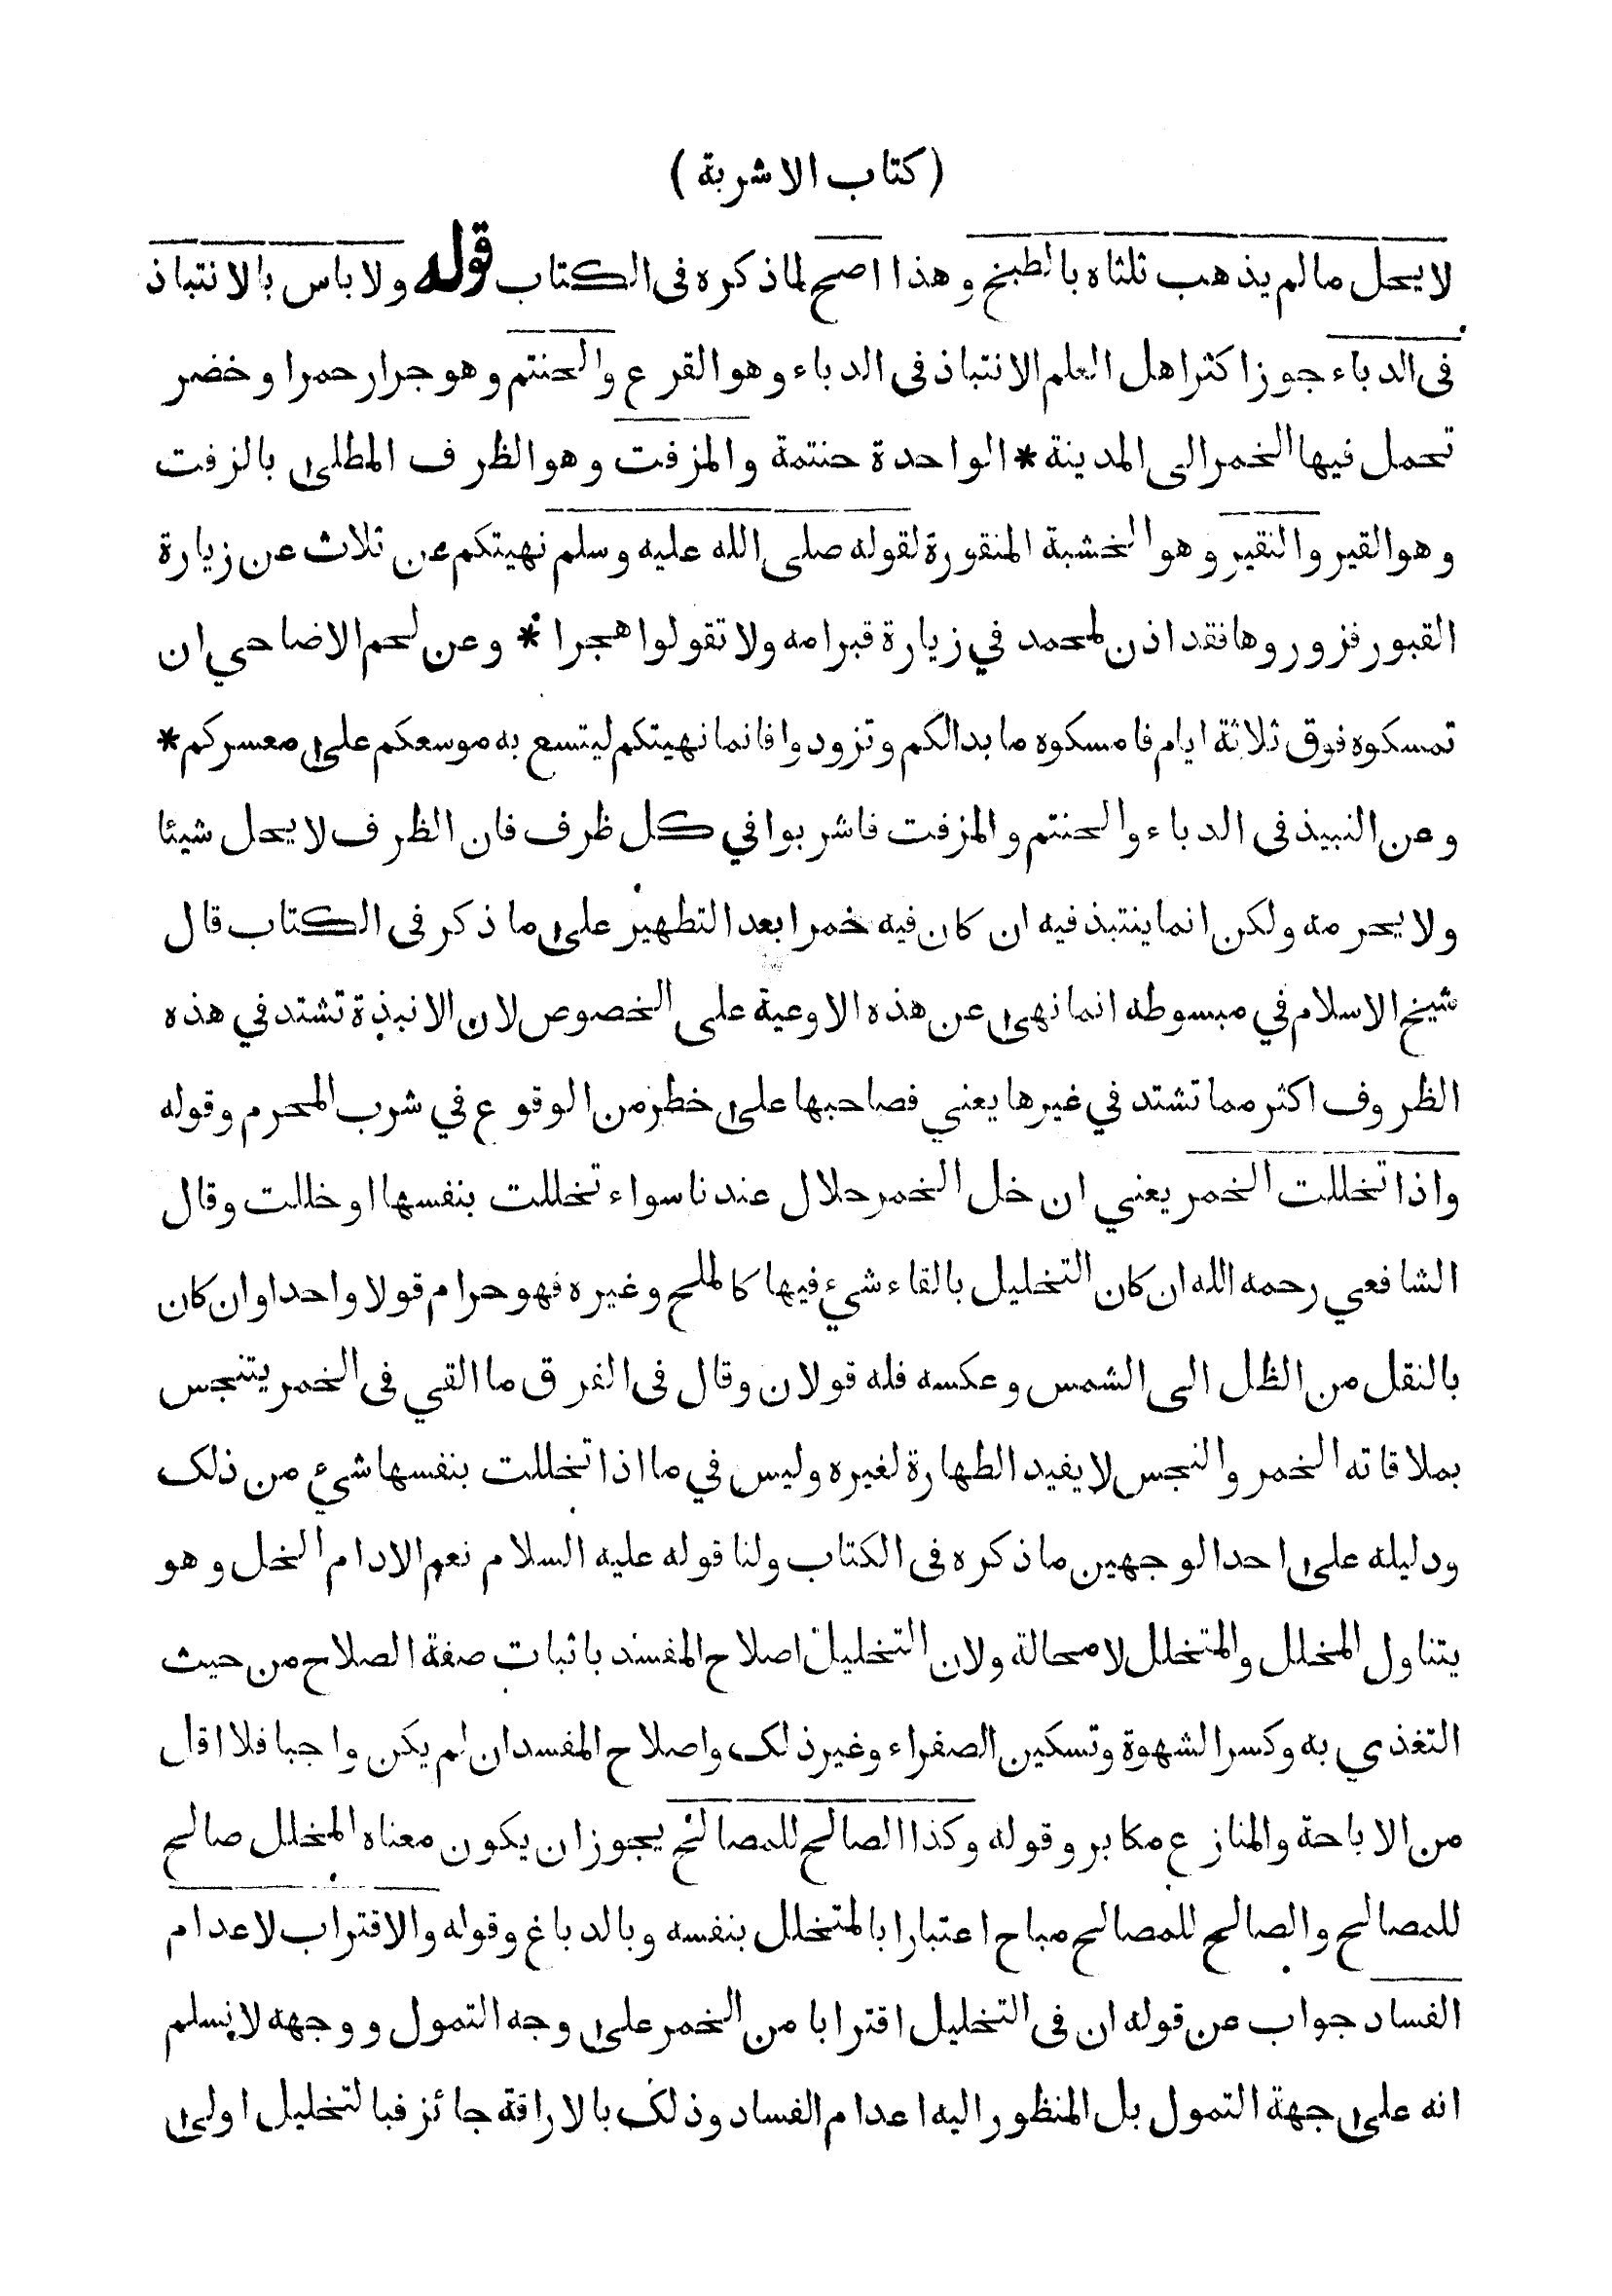 (كتاب الاشربة)
لا يحل مالم يذهب ثلثاه بالطبخ وهذا اصح لماذكره فى الكتاب قوله ولا باس بالانتباذ
فى الدباء جوز اكثر اهل العلم الانتباذ فى الدباء وهو القرع والحنتم وهو جرار حمر او خضر
تحمل فيها الخمر الى المدينة * الواحدة حنتمة والمزفت وهو الظرف المطلى بالزفت
وهو القير والنقير وهو الخشبة المنقورة لقوله صلى الله عليه وسلم نهيتكم عن ثلاث عن زيارة
القبور فزوروها فقد اذن لمحمد في زيارة قبر امه ولا تقولوا هجرا * وعن لحم الاضاحي ان
تمسكوه فوق ثلاثة ايام فامسكوه ما بدالكم وتزودوا فانما نهيتكم ليتسع به موسعكم على معسركم *
وعن النبيذ فى الدباء والحنتم والمزفت فاشربوا في كل ظرف فان الظرف لا يحل شيئا
ولا يحرمه ولكن انما ينتبذ فيه ان كان فيه خمر ابعد التطهير على ما ذكر فى الكتاب قال
شيخ الاسلام في مبسوطه انما نهى عن هذه الاوعية على الخصوص لان الانبذة تشتد في هذه
الظروف اكثر مما تشتد في غيرها يعني فصاحبها على خطر من الوقوع في شرب المحرم وقوله
واذا تخللت الخمر يعني ان خل الخمر حلال عندنا سواء تخللت بنفسها او خللت وقال
الشافعي رحمه الله ان كان التخليل بالقاء شيء فيها كالملح وغيره فهو حرام قولا واحدا وان كان
بالنقل من الظل الى الشمس وعكسه فله قولان وقال فى الفرق ما القي فى الخمر يتنجس
بملاقاته الخمر والنجس لا يفيد الطهارة لغيره وليس في ما اذا تخللت بنفسها شيء من ذلك
ودليله على احد الوجهين ما ذكره فى الكتاب ولنا قوله عليه السلام نعم الادام الخل وهو
يتناول المخلل والمتخلل لامحالة ولان التخليل اصلاح المفسد باثبات صفة الصلاح من حيث
التغذي به وكسر الشهوة وتسكين الصفراء وغير ذلك واصلاح المفسد ان لم يكن واجبا فلا اقل
من الاباحة والمنازع مكابر وقوله وكذا الصالح للمصالح يجوز ان يكون معناه المخلل صالح
للمصالح والصالح للمصالح مباح اعتبارا بالمتخلل بنفسه وبالدباغ وقوله والاقتراب لاعدام
الفساد جواب عن قوله ان فى التخليل اقترابا من الخمر على وجه التمول ووجهه لا نسلم
انه على جهة التمول بل المنظور اليه اعدام الفساد وذلك بالاراقة جائز فبالتخليل اولى